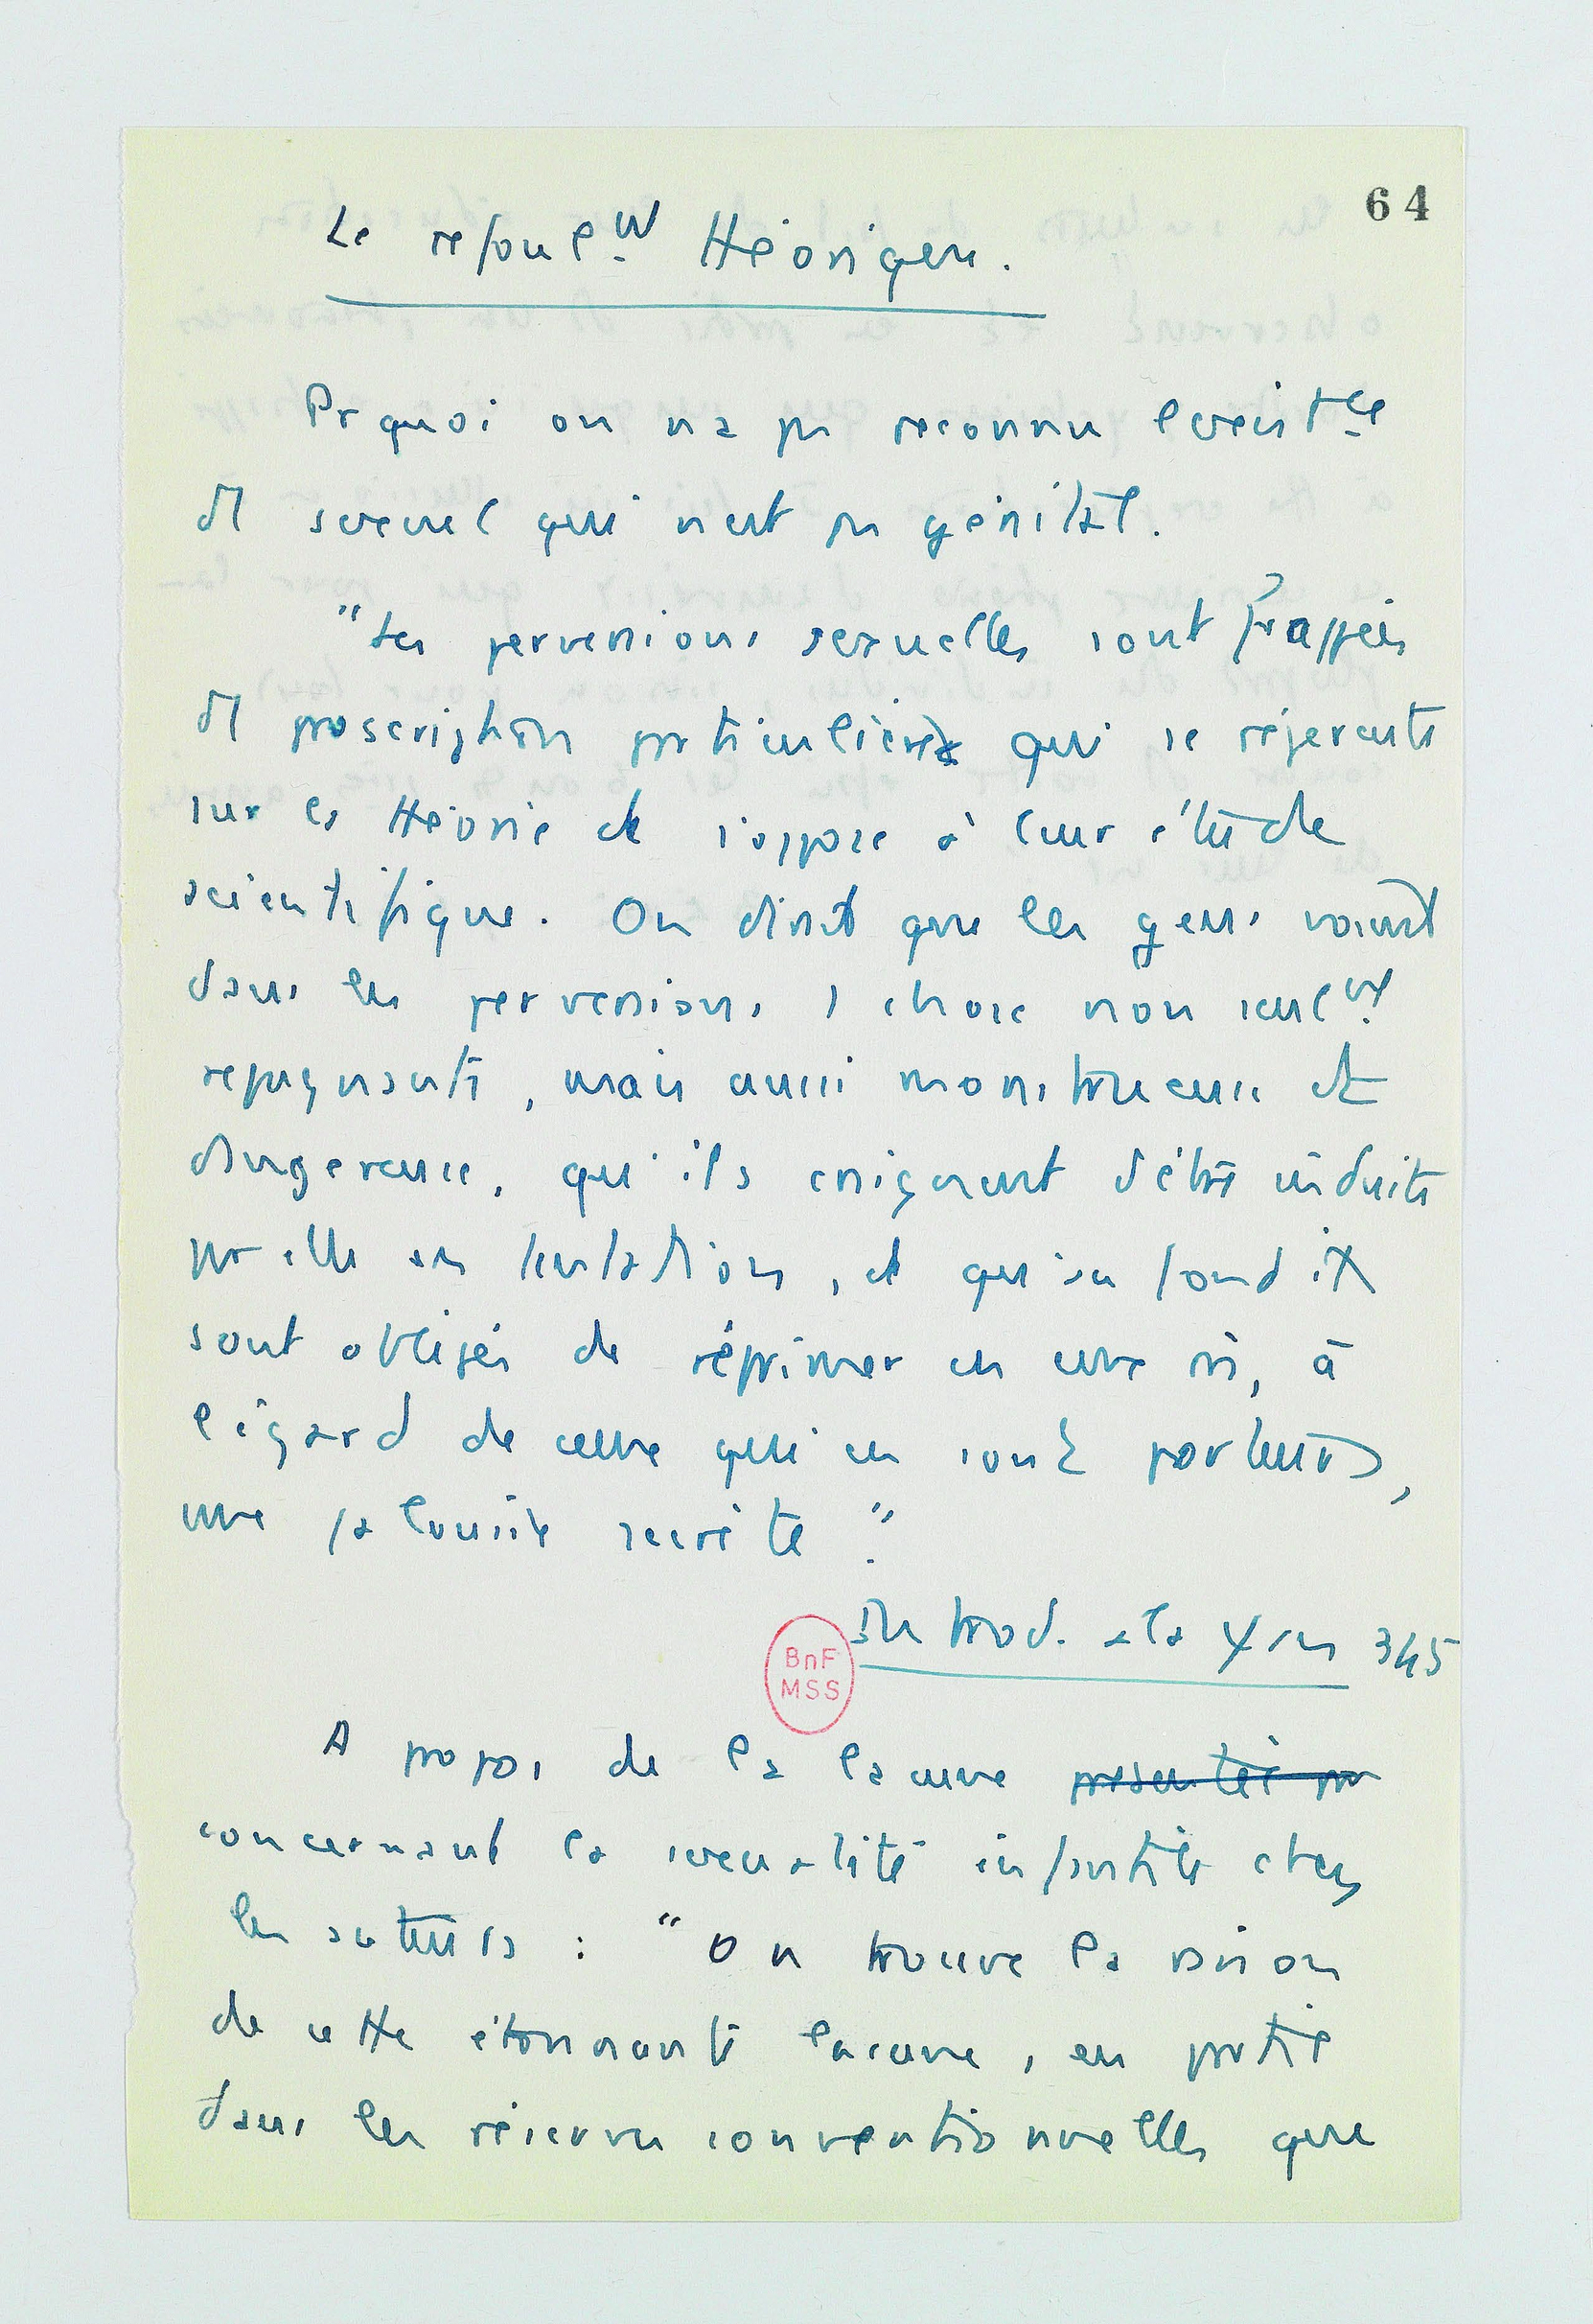 64
Le refoulent théorique.
Pr quoi on n'a pas reconnu l'existce
d'1 sexuel qui n'est pas génital.
"Les perversions sexuelles sont frappées
d'1 proscription particulière qui se répercute
sur la théorie et s'oppose à leur étude
scientifique. On dirait que les gens voient
dans les perversions 1 chose non seulent
répugnante, mais aussi monstrueuse et
dangereuse, qu'ils craignent d'être induits
par elles en tentation, et qu'au fond ils
sont obligés de réprimer en eux-mêmes, à
l'égard de ceux qui en sont porteurs,
une jalousie secrète."
Introd. à la ψ an 345
BnF
MSS
A propos de la lacune présentée par
concernant la sexualité infantile chez
les auteurs : "On trouve la raison
de cette étonnante lacune, en partie
dans les réserves conventionnelles que